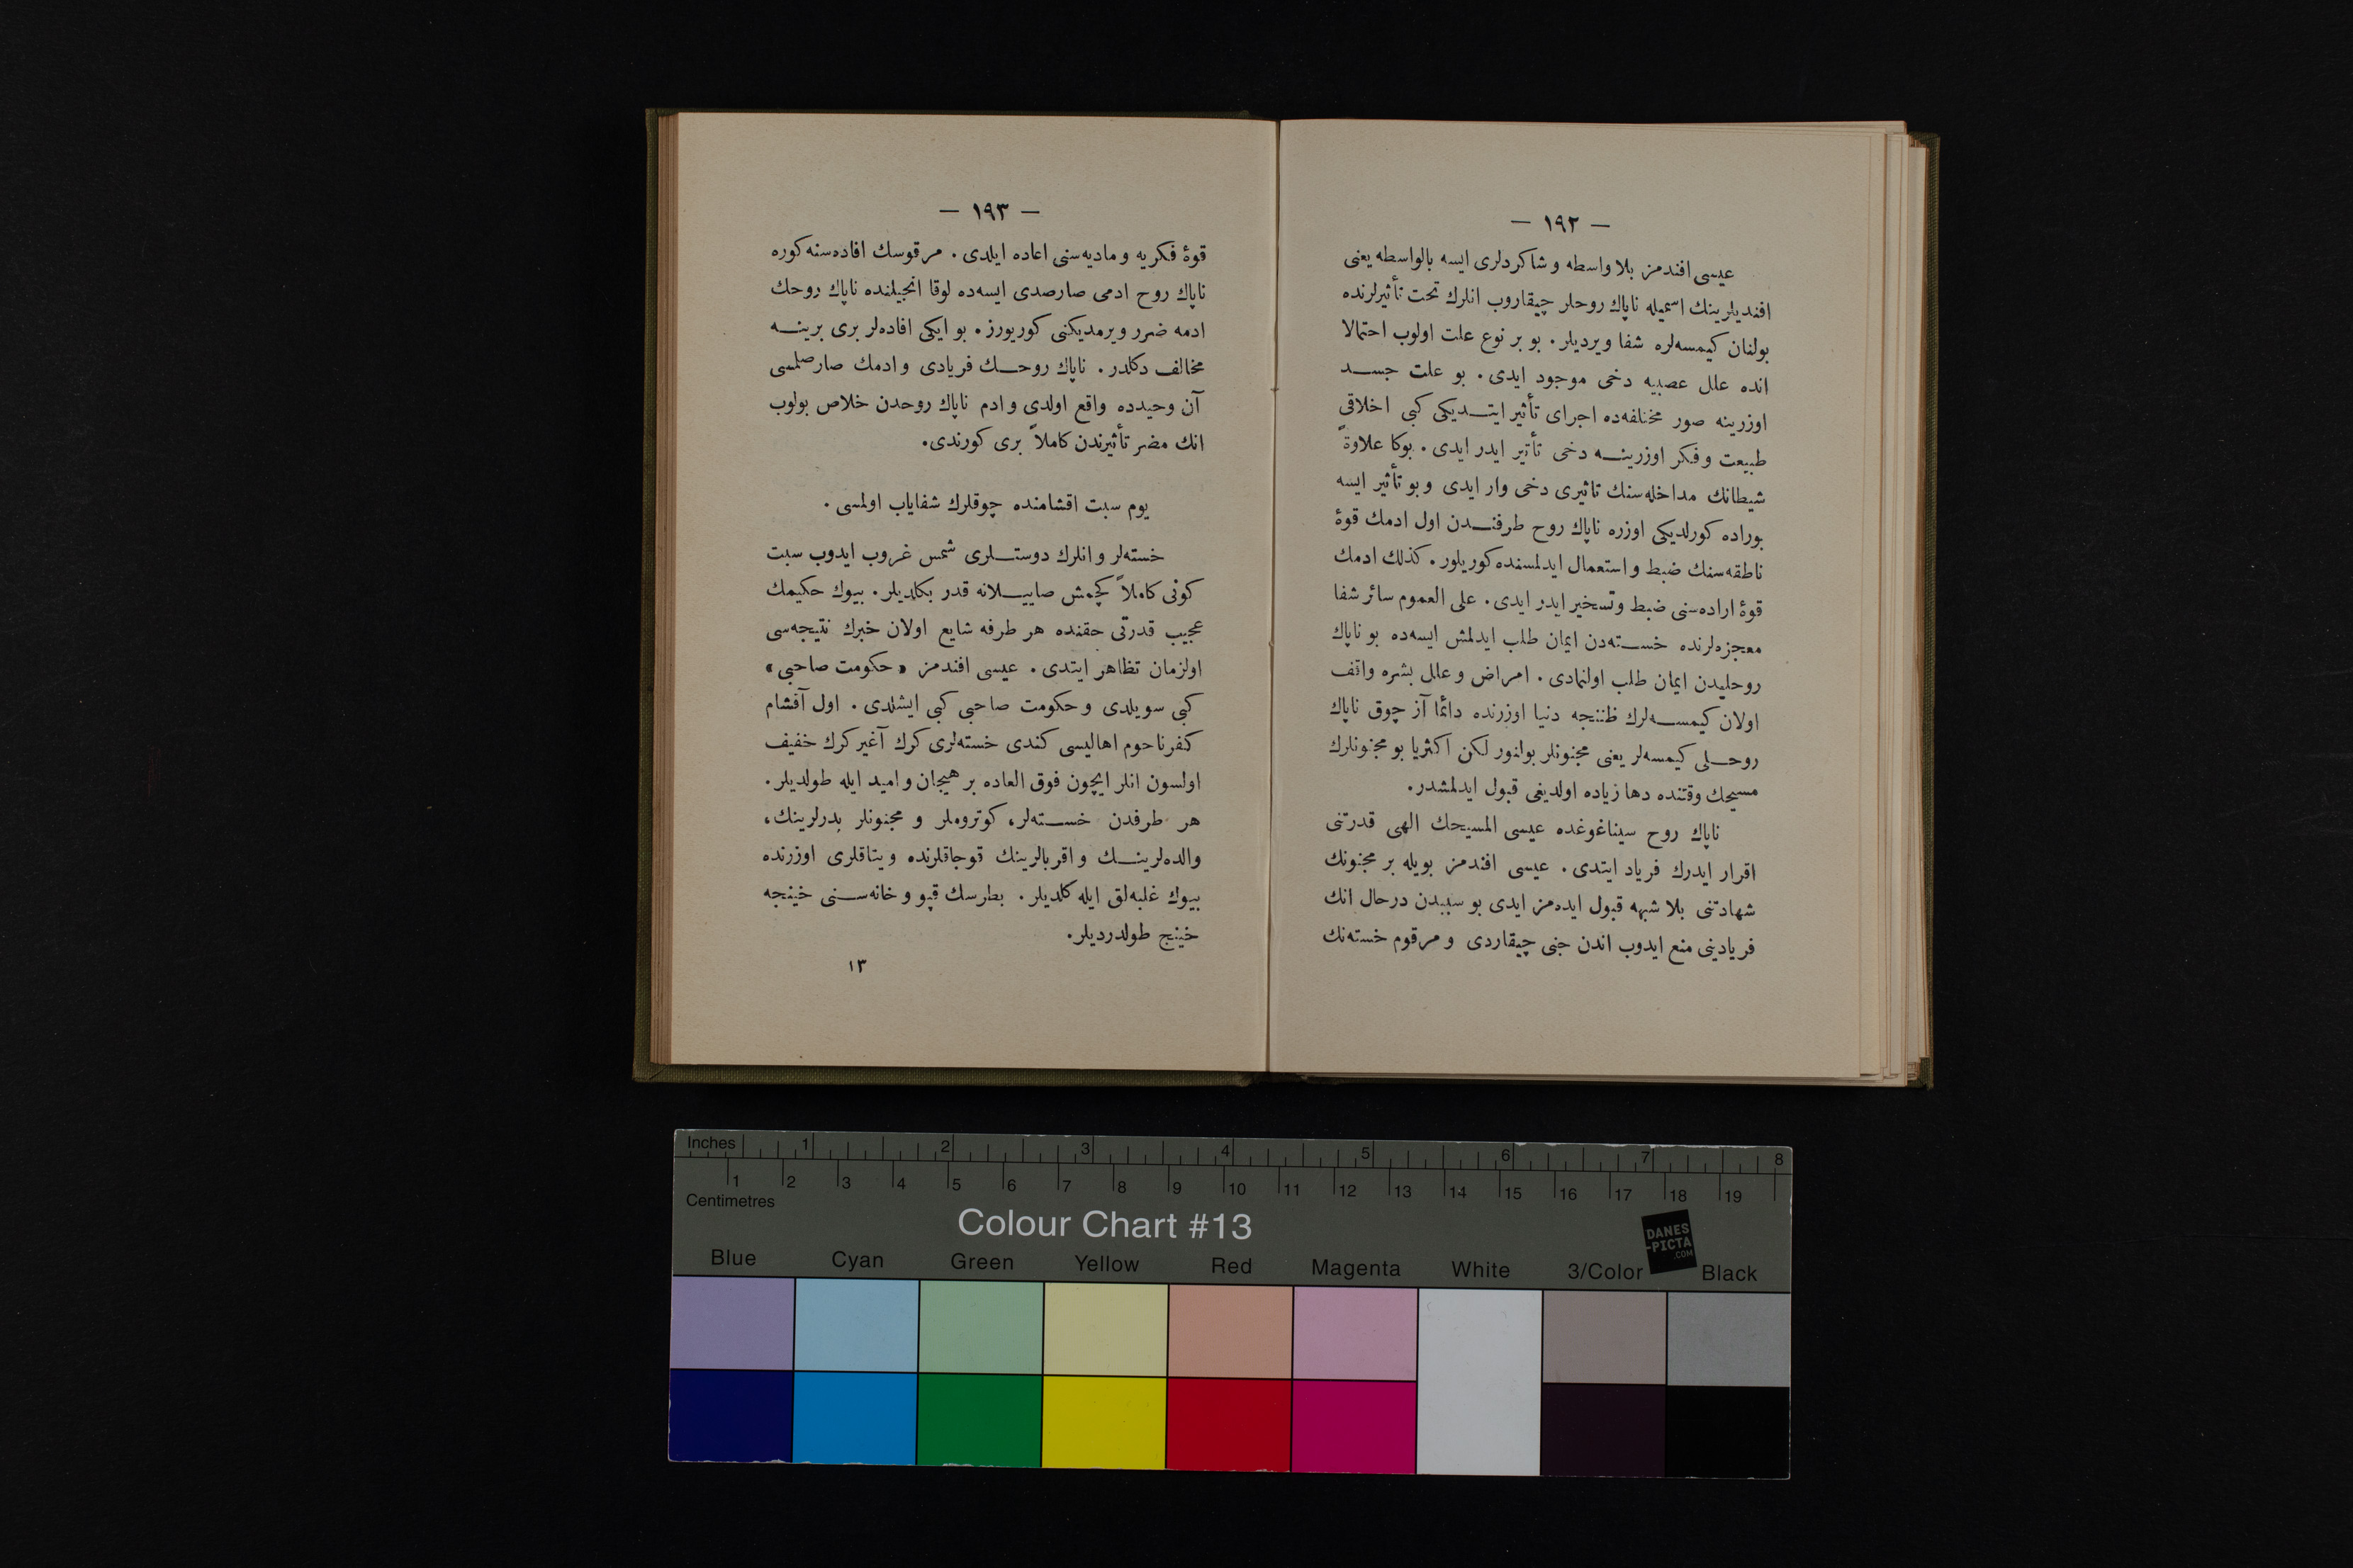 — ١٩٢ —
عیسی افندمز بلا واسطه و شاکردلری ایسه بالواسطه یعنی
افندیلرینك اسمیله ناپاك روحلر چیقاروب انلرك تحت تأثیرلرنده
بولنان کیمسه‌لره شفا ویردیلر. بو بر نوع علت اولوب احتمالا
انده علل عصبیه دخی موجود ایدی. بو علت جسد
اوزرینه صور مختلفه‌ده اجرای تأثیر ایتدیکی کبی اخلاقی
طبیعت و فکر اوزرینه دخی تأثیر ایدر ایدی. بوکا علاوةً
شیطانك مداخله‌سنك تاثیری دخی وار ایدی و بو تأثیر ایسه
بوراده کورلدیکی اوزره ناپاك روح طرفندن اول ادمك قوۀ
ناطقه‌سنك ضبط و استعمال ایدلمسنده کوریلور. کذلك ادمك
قوۀ اراده‌سنی ضبط و تسخیر ایدر ایدی. علی العموم سائر شفا
معجزه‌لرنده خسته‌دن ایمان طلب ایدلمش ایسه‌ده بو ناپاك
روحلیدن ایمان طلب اولنمادی. امراض و علل بشره واقف
اولان کیمسه‌لرك ظننجه دنیا اوزرنده دائما آز چوق ناپاك
روحلی کیمسه‌لر یعنی مجنونلر بولنور لکن اکثریا بو مجنونلرك
مسیحك وقتنده دها زیاده اولدیغی قبول ایدلمشدر.
ناپاك روح سیناغوغده عیسی المسیحك الهی قدرتنی
اقرار ایدرك فریاد ایتدی. عیسی افندمز بویله بر مجنونك
شهادتنی بلا شبهه قبول ایده‌مز ایدی بو سببدن درحال انك
فریادینی منع ایدوب اندن جنی چیقاردی و مرقوم خسته‌نك
— ١٩٣ —
قوۀ فکریه و مادیه‌سنی اعاده ایلدی. مرقوسك افاده‌سنه کوره
ناپاك روح ادمی صارصدی ایسه‌ده لوقا انجیلنده ناپاك روحك
ادمه ضرر ویرمدیکنی کوریورز. بو ایکی افاده‌لر بری برینه
مخالف دکلدر. ناپاك روحك فریادی و ادمك صارصلمسی
آن وحیدده واقع اولدی و ادم ناپاك روحدن خلاص بولوب
انك مضر تأثیرندن کاملاً بری کورندی.
یوم سبت اقشامنده چوقلرك شفایاب اولمسی.
خسته‌لر و انلرك دوستلری شمس غروب ایدوب سبت
کونی کاملاً کچمش صاییلانه قدر بکلدیلر. بیوك حکیمك
عجیب قدرتی حقنده هر طرفه شایع اولان خبرك نتیجه‌سی
اولزمان تظاهر ایتدی. عیسی افندمز «حکومت صاحبی»
کبی سویلدی و حکومت صاحبی کبی ایشلدی. اول آقشام
کفرناحوم اهالیسی کندی خسته‌لری کرك آغیر کرك خفیف
اولسون انلر ایچون فوق العاده بر هیجان و امید ایله طولدیلر.
هر طرفدن خسته‌لر، کوتروملر و مجنونلر پدرلرینك،
والده‌لرینك و اقربالرینك قوجاقلرنده و یتاقلری اوزرنده
بیوك غلبه‌لق ایله کلدیلر. بطرسك قپو و خانه‌سنی خینجه
خینج طولدردیلر.
١٣
Inches 1 2 3 4 5 6 7 8
1 2 3 4 5 6 7 8 9 10 11 12 13 14 15 16 17 18 19
Centimetres
Colour Chart #13
DANES
-PICTA
.COM
Blue Cyan Green Yellow Red Magenta White 3/Color Black